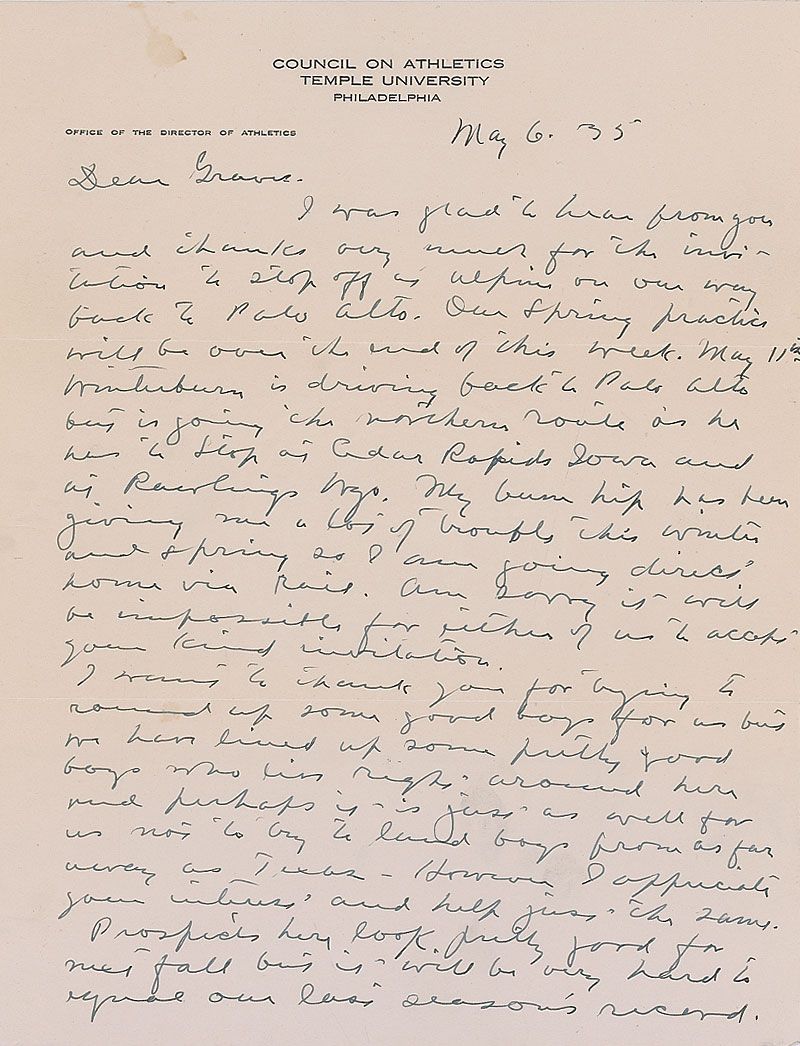 COUNCIL ON ATHLETICS
TEMPLE UNIVERSITY
PHILADELPHIA
OFFICE OF THE DIRECTOR OF ATHLETICS
May 6. 35
Dear
I was glad to hear from you
and thanks very much for the invi-
tation to stop off at alpine on our way
back to Palo Alto. Our Spring practice
will be over the end of this week. May 11th
Winterburn is driving back to Palo Alto
but is going the northern route as he
has to Stop at Cedar Rapids Iowa and
at Rawlings Wyo. My bum hip has been
giving me a lot of trouble this winter
and spring so I am going direct
home via Rail. Am sorry it will
be impossible for either of us to accept
your kind invitation.
I want to thank you for trying to
round up some good boys for us but
we have lined up some pretty good
boys who live right around here
and perhaps it is just as well for
us not to try to land boys from as far
away as Texas - However I appreciate
your interest and help just the same.
Prospects here look pretty good for
next fall but it will be very hard to
equal our last season's record.